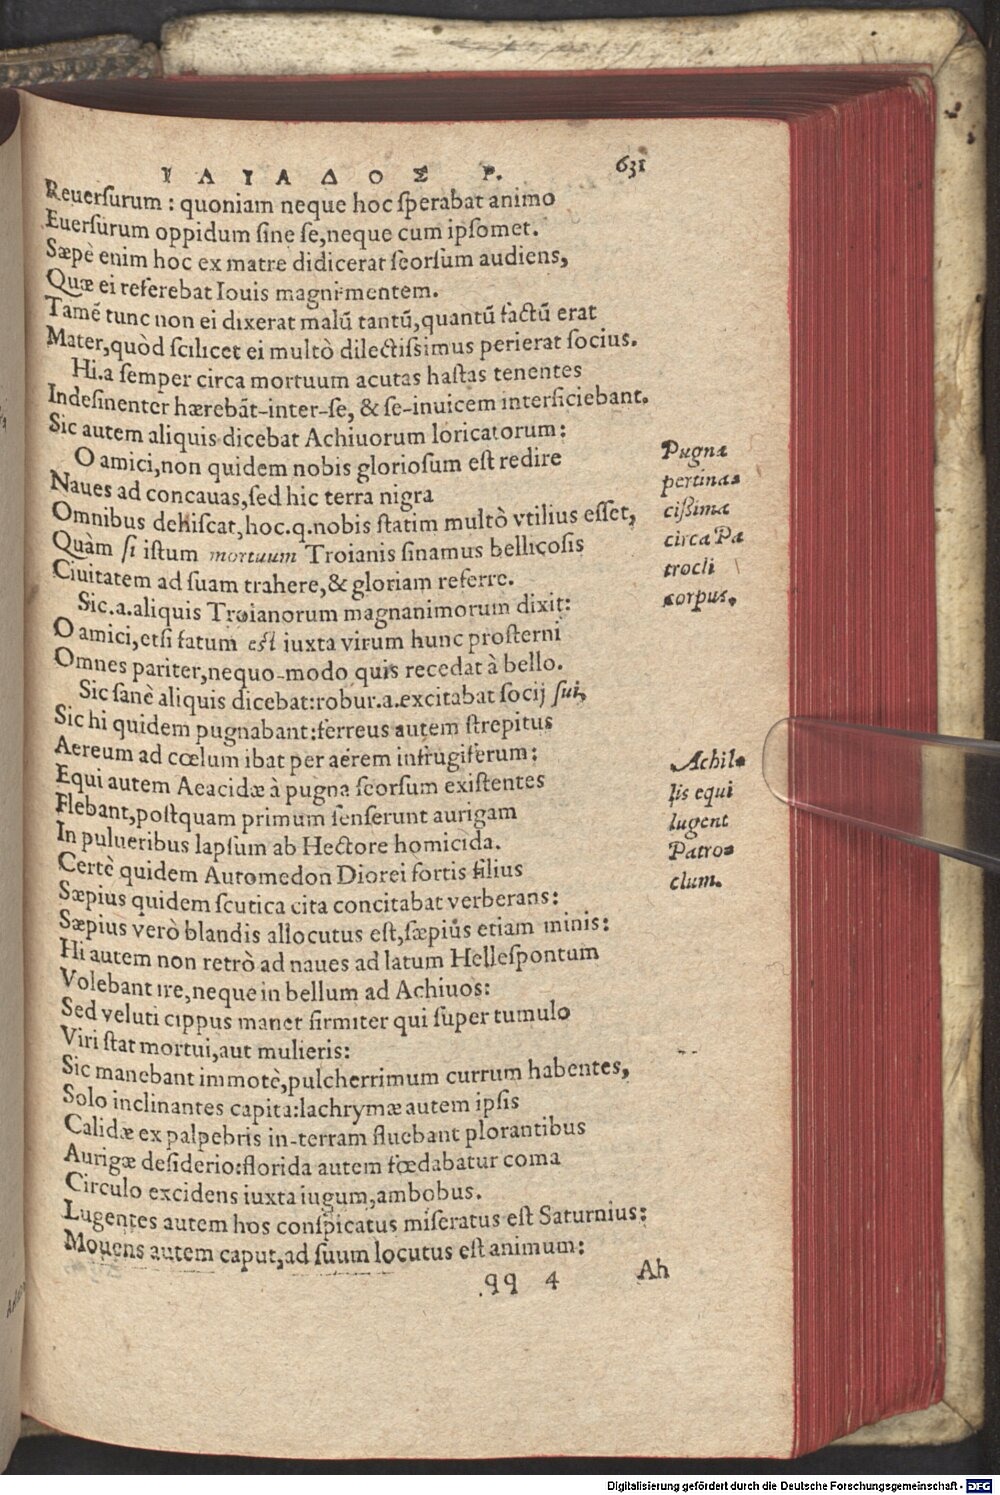 ΙΛΙΑΔΟΣ Ρ. 631
Reuersurum : quoniam neque hoc sperabat animo
Euersurum oppidum sine se,neque cum ipsomet.
Sæpè enim hoc ex matre didicerat seorsum audiens,
Quæ ei referebat Iouis magni-mentem.
Tamẽ tunc non ei dixerat malũ tantũ,quantũ factũ erat
Mater,quòd scilicet ei multò dilectissimus perierat socius.
Hi.a semper circa mortuum acutas hastas tenentes
Indesinenter hærebãt-inter-se, & se-inuicem interficiebant.
Sic autem aliquis dicebat Achiuorum loricatorum:
O amici,non quidem nobis gloriosum est redire
Naues ad concauas,sed hic terra nigra
Omnibus dehiscat,hoc.q.nobis statim multò vtilius esset,
Quàm si istum mortuum Troianis sinamus bellicosis
Ciuitatem ad suam trahere,& gloriam referre.
Sic.a.aliquis Troianorum magnanimorum dixit:
O amici,etsi fatum est iuxta virum hunc prosterni
Omnes pariter,nequo-modo quis recedat à bello.
Sic sanè aliquis dicebat:robur.a.excitabat socij sui,
Sic hi quidem pugnabant:ferreus autem strepitus
Aereum ad cœlum ibat per aërem infrugiferum:
Equi autem Aeacidæ à pugna seorsum existentes
Flebant,postquam primum senserunt aurigam
In pulueribus lapsum ab Hectore homicida.
Certè quidem Automedon Diorei fortis filius
Sæpius quidem scutica cita concitabat verberans:
Sæpius verò blandis allocutus est,sæpius etiam minis:
Hi autem non retrò ad naues ad latum Hellespontum
Volebant ire,neque in bellum ad Achiuos:
Sed veluti cippus manet firmiter qui super tumulo
Viri stat mortui,aut mulieris:
Sic manebant immotè,pulcherrimum currum habentes,
Solo inclinantes capita:lachrymæ autem ipsis
Calidæ ex palpebris in-terram fluebant plorantibus
Aurigæ desiderio:florida autem fœdabatur coma
Circulo excidens iuxta iugum,ambobus.
Lugentes autem hos conspicatus miseratus est Saturnius:
Mouens autem caput,ad suum locutus est animum:
qq 4 Ah
Pugna
pertina-
cißima
circa Pa
trocli
corpus.
Achil-
lis equi
lugent
Patro-
clum.
Digitalisierung gefördert durch die Deutsche Forschungsgemeinschaft - DFG